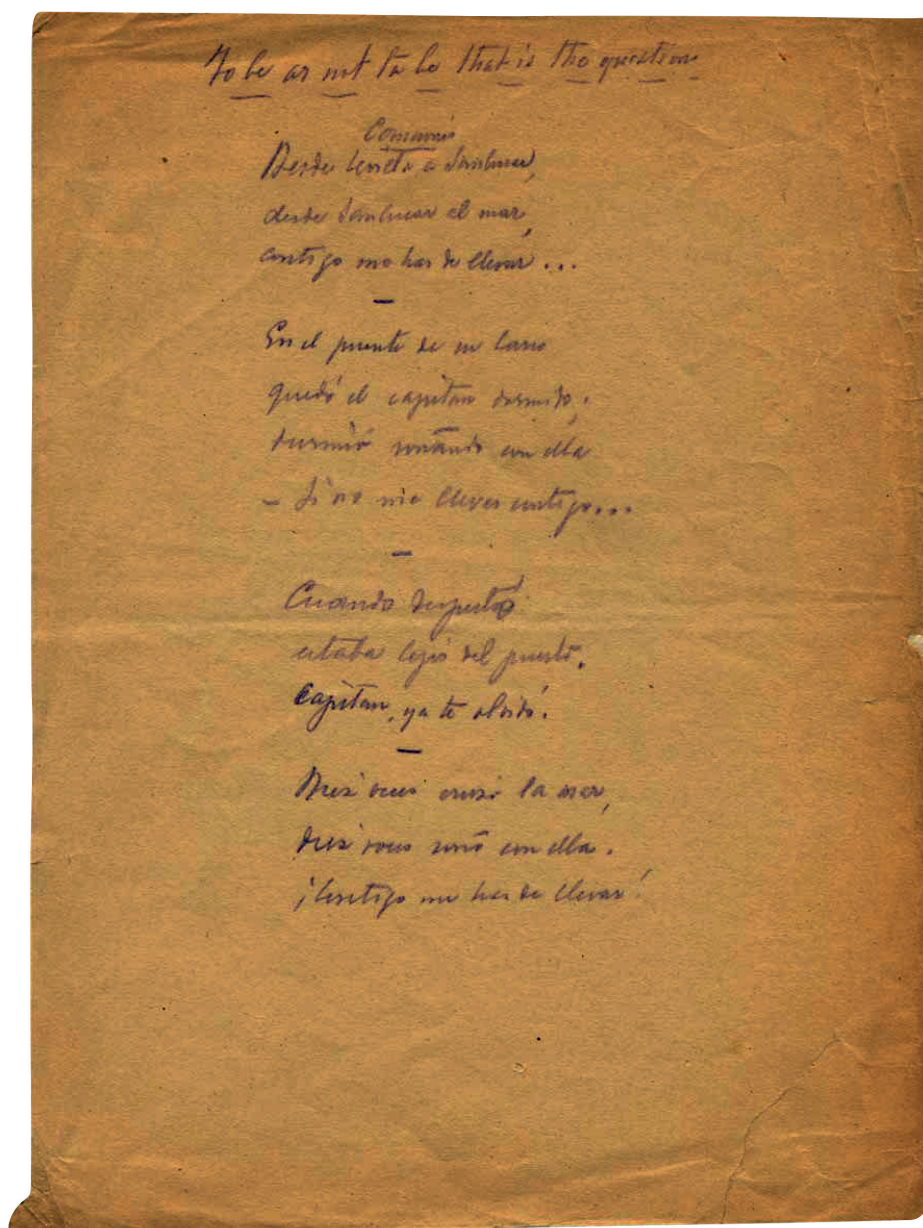 To be or not to be that is the question
Desde Sevilla a Sanlucar,
desde Sanlucar al mar,
contigo me has de llevar...
En el puente de su barco
quedó el capitan dormido;
durmió soñando con ella
– Si no me llevas contigo...
Cuando despertó
estaba lejos del puerto.
Capitan, ya te olvidó.
Diez veces cruzó la mar,
diez veces soñó con ella.
¡Contigo me has de llevar!